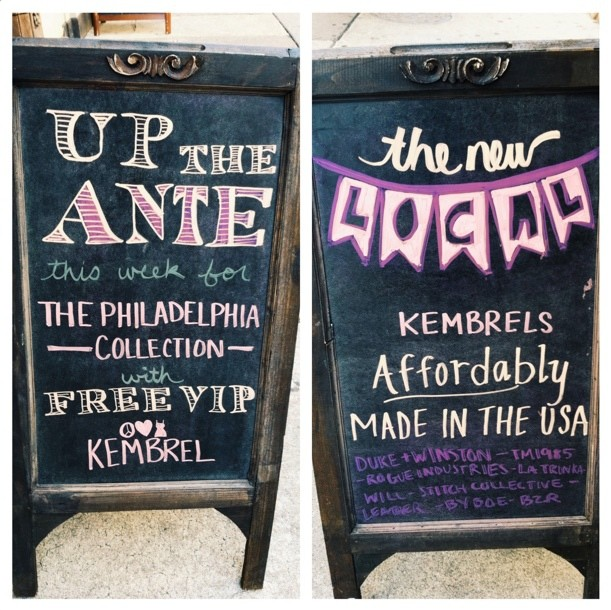 UP THE
ANTE
this week for
THE PHILADELPHIA
COLLECTION
with
FREE VIP
KEMBREL
the new
LOCAL
KEMBRELS
Affordably
MADE IN THE USA
DUKE + WINSTON - TM1985
- ROGUE INDUSTRIES - LA TRINKA -
WILL - STITCH COLLECTIVE -
LEATHER - BY BOE - BZR